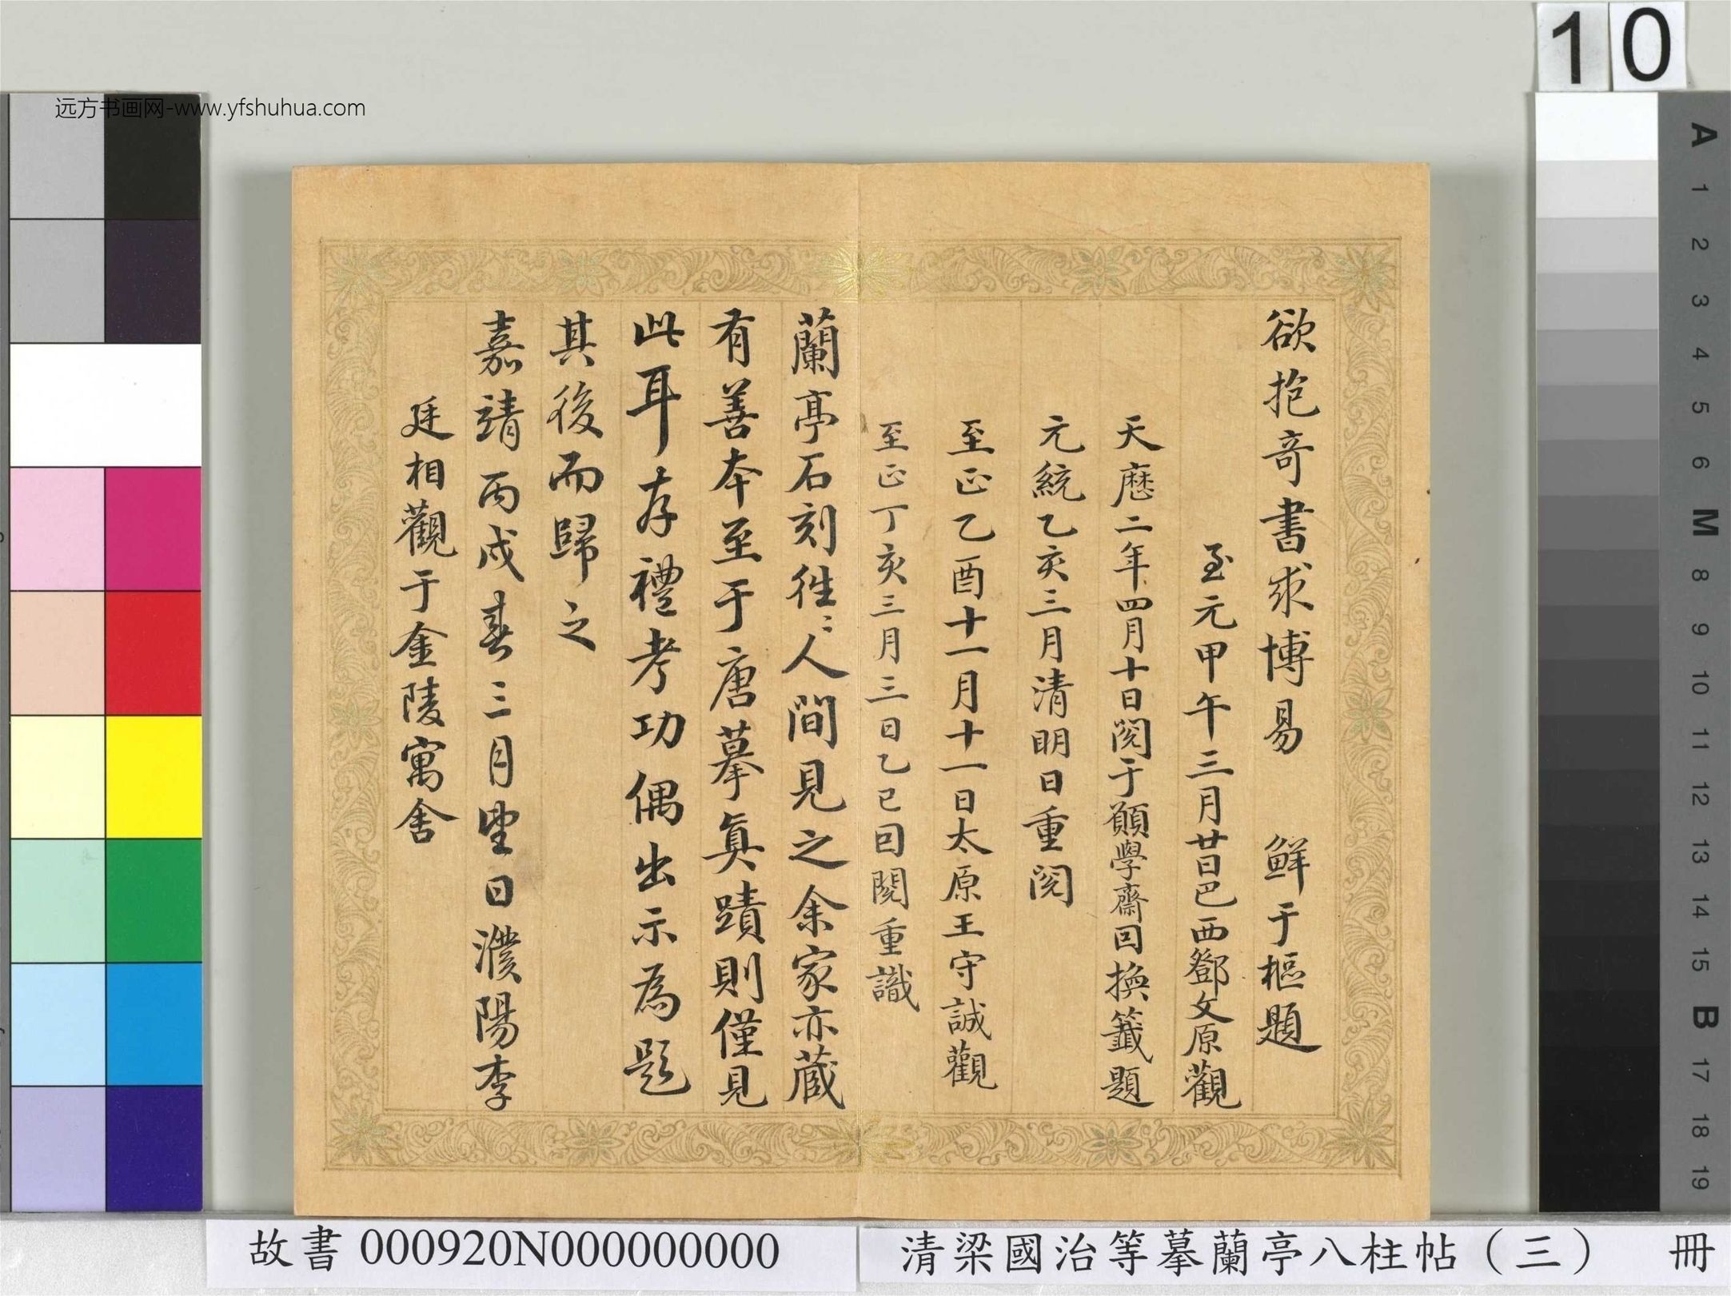 10
远方书画网-www.yfshuhua.com
欲抱奇書求博易 鮮于樞題
至元甲午三月廿日巴西鄧文原觀
天歷二年四月十日閱于願學齋囙換籤題
元統乙亥三月清明日重閱
至正乙酉十一月十一日太原王守誠觀
至正丁亥三月三日乙巳囙閱重識
蘭亭石刻往〻人間見之余家亦蔵
有善本至于唐摹真蹟則僅見
此耳存禮孝功偶出示為題
其後而歸之
嘉靖丙戌春三月望日濮陽李
廷相觀于金陵寓舍
故書 000920N000000000
清梁國治等摹蘭亭八柱帖（三） 冊
A
1
2
3
4
5
6
M
8
9
10
11
12
13
14
15
B
17
18
19